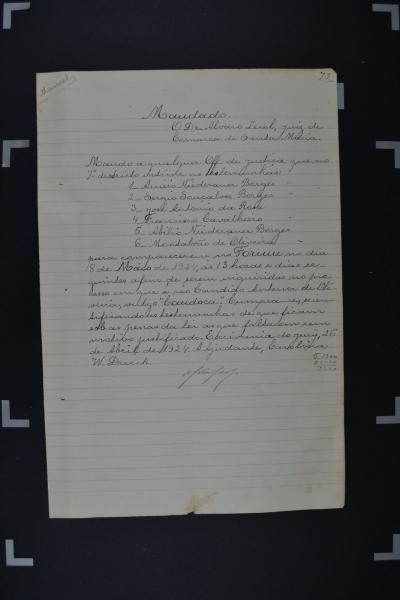 Manoel
72
Mandado.
O Dr. Alvaro Leal, juiz de
Comarca de Santa Maria.
Mando a qualquer Off. de justiça que no
1º districto intime as testemunhas:
1 - Niederauer Borges
2 - Sergio Gonçalves Borges
3 - José Antonio da Rosa
4 Francisco Cavalheiro
5 - Abilio Niederauer Borges
6 - de Oliveira
para comparecerem no Forum no dia
8 de Maio de 1924, as 13 horas e dias se-
guintes afim de serem inqueridas no pro-
cesso em que e réo Candido Antonio de Oli-
veira, vulgo "Candoca". Cumpra-se, scien-
tificando as testemunhas de que ficam
sob as penas da lei as que faltarem sem
motivo justificado. Escrivania do jury, 26
de Abril de 1924. A Ajudante, Carolina
W.